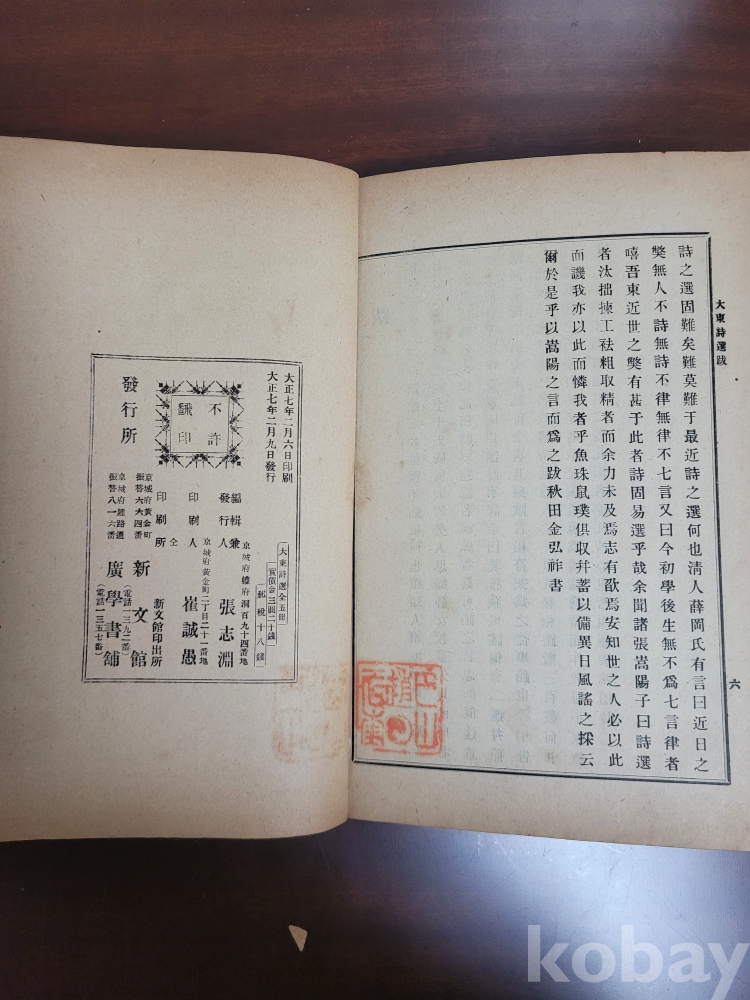 大東詩選跋
六
詩之選固難矣難莫難于最近詩之選何也淸人薛岡氏有言曰近日之
獘無人不詩無詩不律無律不七言又曰今初學後生無不爲七言律者
嘻吾東近世之獘有甚于此者詩固易選乎哉余聞諸張嵩陽子曰詩選
者汰拙揀工袪粗取精者而余力未及焉志有歉焉安知世之人必以此
而譏我亦以此而憐我者乎魚珠鼠璞俱収幷蓄以備異日風謠之採云
爾於是乎以嵩陽之言而爲之跋秋田金弘祚書
大正七年二月六日印刷
大正七年二月九日發行
不許
飜印
大東詩選全五冊
實價金三圓二十錢
郵稅十八錢
京城府體府洞百九十四番地
編輯兼
發行人 張志淵
京城府黃金町二丁目二十一番地
印刷人 崔誠愚
仝
印刷所 新文館印出所
發行所
京城府黃金町
振替六六四番
新文館
(電話一三九二番)
京城府鍾路通
振替八一六番
廣學書舖
(電話一三五七番)
kobay